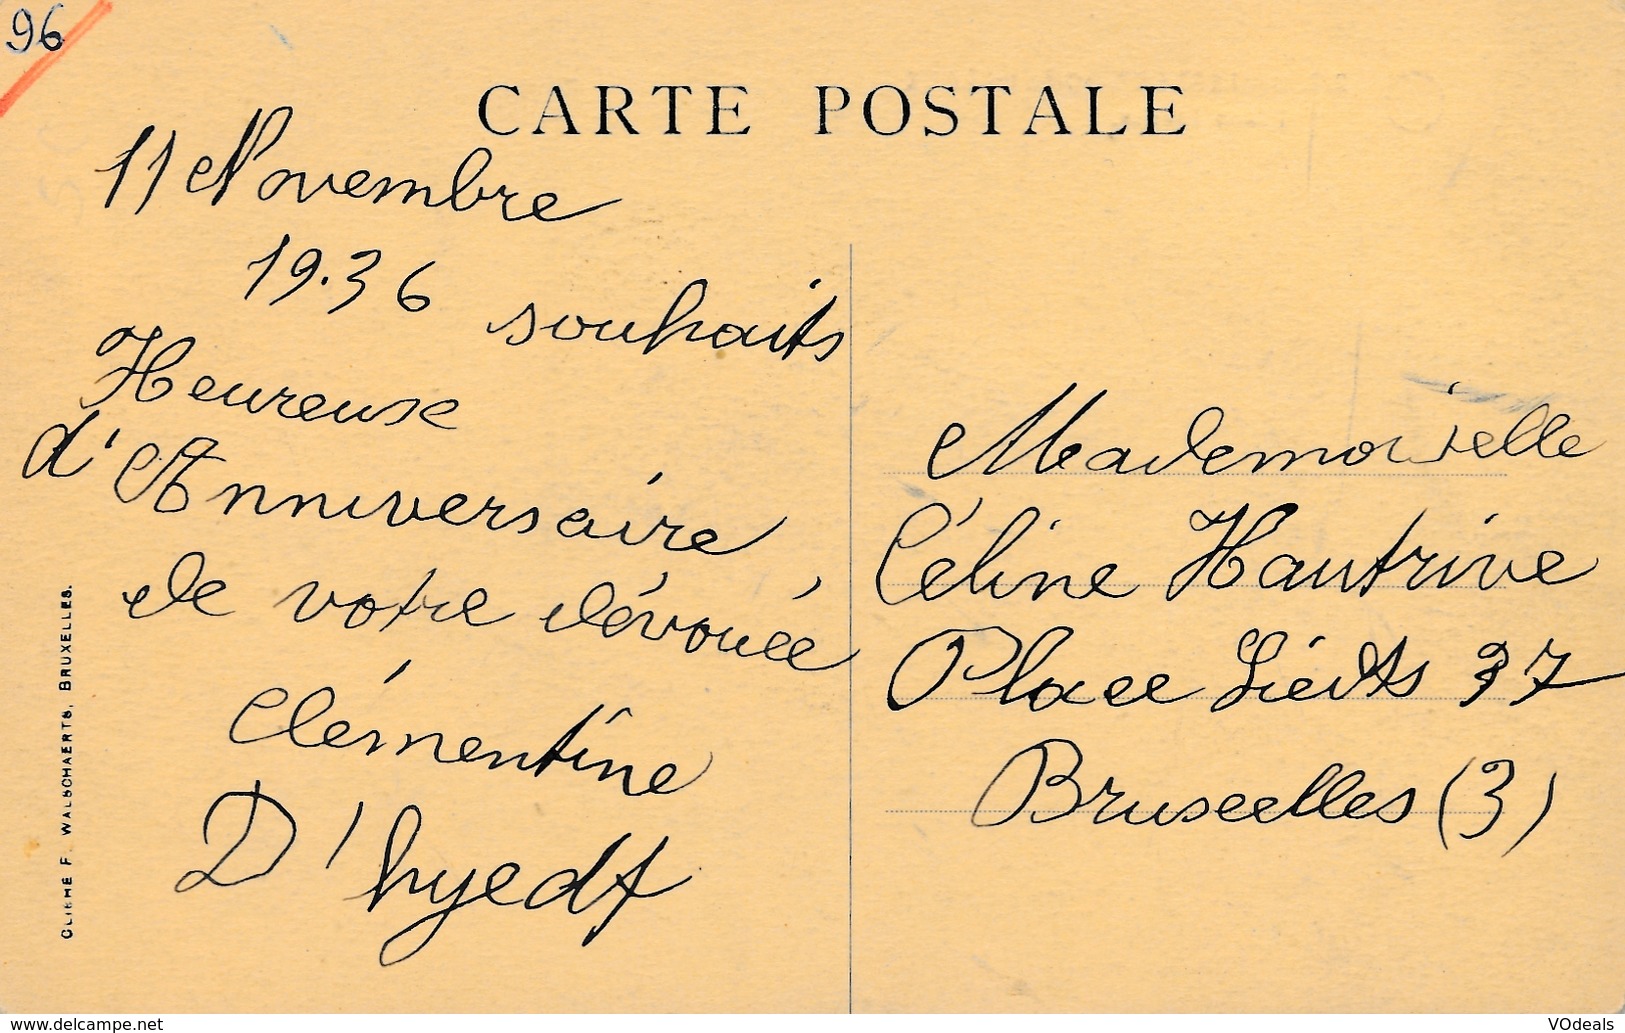 96
CARTE POSTALE
11 Novembre
19.36
souhaits
Heureuse
d'Anniversaire
de votre dévouée
Clémentine
D'hyedt
Mademoiselle
Céline Hautrive
Place Liedts 37
Bruxelles (3)
CLICHÉ F. WALSCHAERTS, BRUXELLES.
www.delcampe.net
VOdeals